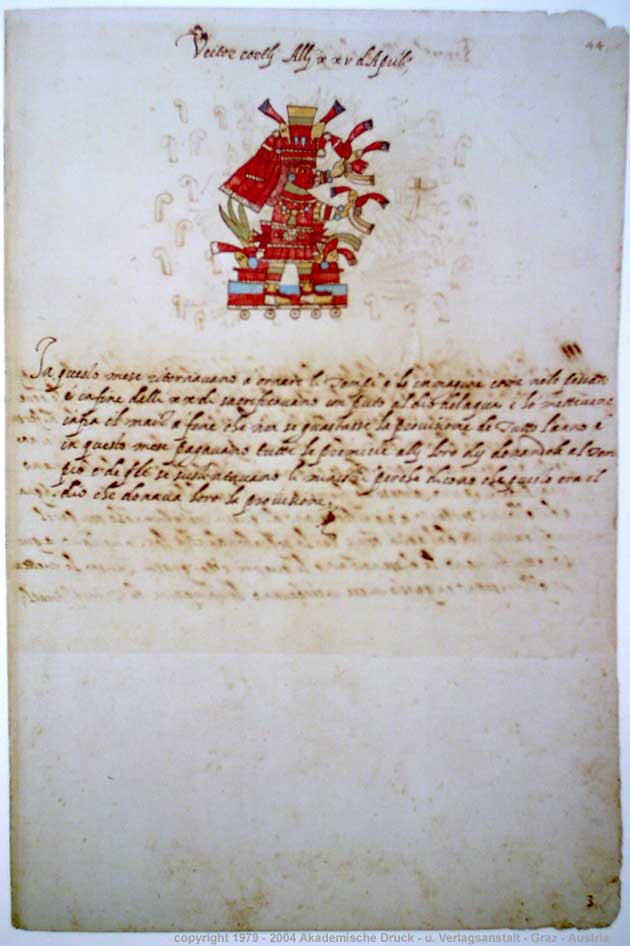 44
Veitozcoztli Alli xxv d'Aprile
In questo mese ritornavano a ornare li Tempi e le immagine come nele
é in fine delli xx dì sacrificavano un puto al dio del aqua e lo mettevano
il maiz a fine che non se guastasse la provisione de tutto l'anno e
in questo mese pagavano tutte le premicie alli loro dij donandole al Tem
pio e de lli se sustentavano li maistri perche dicono che questo era el
dio che donava loro la provisione.
3
copyright 1979 - 2004 Akademische Druck - u. Verlagsanstalt - Graz - Austria